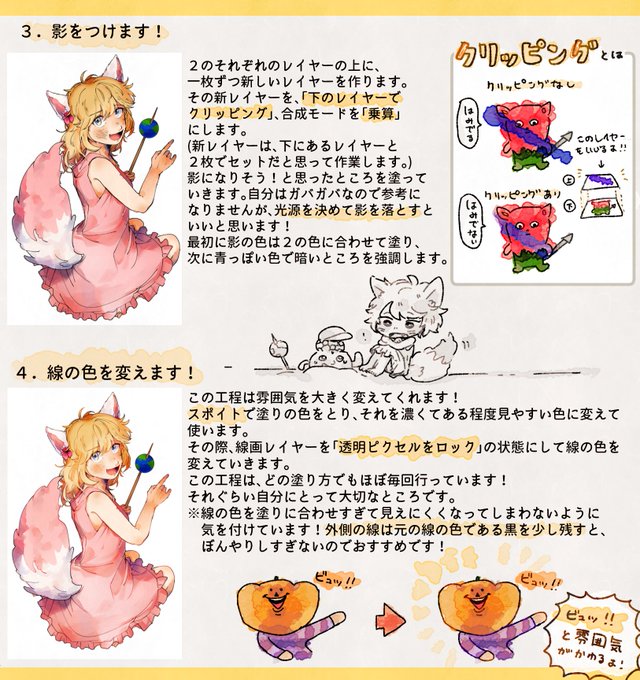 3．影をつけます！
2のそれぞれのレイヤーの上に、
一枚ずつ新しいレイヤーを作ります。
その新レイヤーを、「下のレイヤーで
クリッピング」、合成モードを「乗算」
にします。
(新レイヤーは、下にあるレイヤーと
2枚でセットだと思って作業します。)
影になりそう！と思ったところを塗って
いきます。自分はガバガバなので参考に
なりませんが、光源を決めて影を落とすと
いいと思います！
最初に影の色は2の色に合わせて塗り、
次に青っぽい色で暗いところを強調します。
クリッピングとは
クリッピングなし
はみでる
このレイヤー
をいじるよ！
上
下
クリッピングあり
はみでない
4．線の色を変えます！
この工程は雰囲気を大きく変えてくれます！
スポイトで塗りの色をとり、それを濃くてある程度見やすい色に変えて
使います。
その際、線画レイヤーを「透明ピクセルをロック」の状態にして線の色を
変えていきます。
この工程は、どの塗り方でもほぼ毎回行っています！
それぐらい自分にとって大切なところです。
※線の色を塗りに合わせすぎて見えにくくなってしまわないように
気を付けています！外側の線は元の線の色である黒を少し残すと、
ぼんやりしすぎないのでおすすめです！
ビュッ!!
ビュッ!!
ビュッ!!
と雰囲気
がかわるよ!